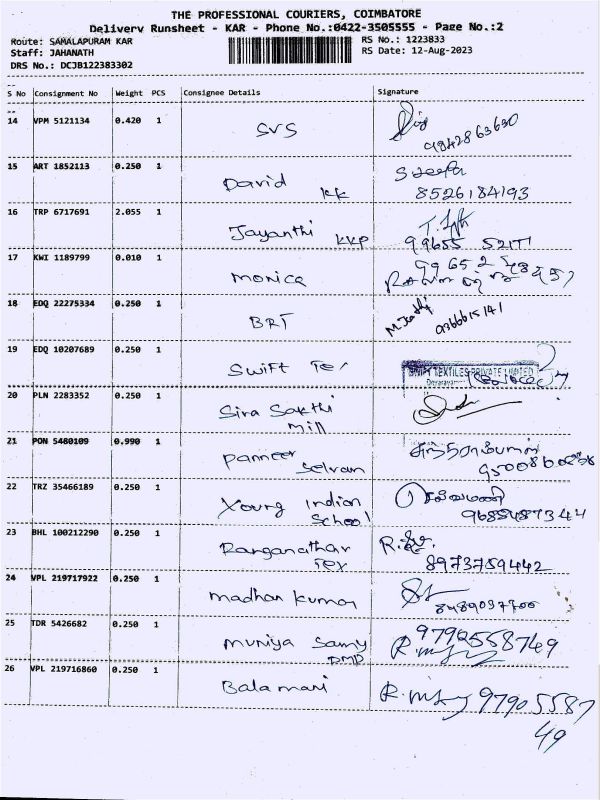 THE PROFESSIONAL COURIERS, COIMBATORE
Delivery Runsheet - KAR - Phone No.:0422-3505555 - Page No.:2
Route: SAMALAPURAM KAR
RS No.: 1223833
Staff: JAHANATH
RS Date: 12-Aug-2023
DRS No.: DCJB122383302
S No Consignment No Weight PCS Consignee Details Signature
14 VPM 5121134 0.420 1
SVS
9842863690
15 ART 1852113 0.250 1
David KK
8526184193
16 TRP 6717691 2.055 1
Jayanthi KVP
99655 52171
17 KWI 1189799 0.010 1
monica
18 EDQ 22275334 0.250 1
BRT
9366615141
19 EDQ 10207689 0.250 1
Swift Tex
SWIFT TEXTILES PRIVATE LIMITED
20 PLN 2283352 0.250 1
Siva Sakthi
mill
21 PON 5480109 0.990 1
Panneer
Selvam
22 TRZ 35466189 0.250 1
Young Indian
School
9685487344
23 BHL 100212290 0.250 1
Ranganathar
Tex
8973759442
24 VPL 219717922 0.250 1
madhan kumar
8489037700
25 TDR 5426682 0.250 1
muniya Samy
PMP
9790558749
26 VPL 219716860 0.250 1
Bala mari
97905587
49